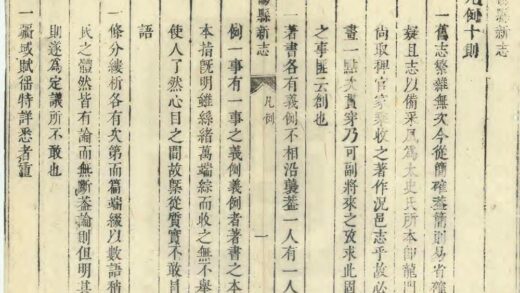 縣新志
凡例十則
一舊志繁雜無次今從簡確蓋簡則易省確
疑且志以備采風為太史氏所本即龍門
尚取稗官家乘收之著作況邑志乎故必
畫一點大貫穿乃可副將來之攷求此固
之事匪云創也
著書各有義例不相沿襲蓋一人有一人
例一事有一事之義例義例者著書之本
本指既明雖絲緒萬端綜而收之無不舉
使人了然心目之間故槩從質實不敢
語
一條分縷析各有次第而篇端綴以數語稍
氏之體然皆有論而無斷蓋論則但明其
則遂為定議所不敢也
一疆域賦徭特詳悉者重
縣新志
凡例
一